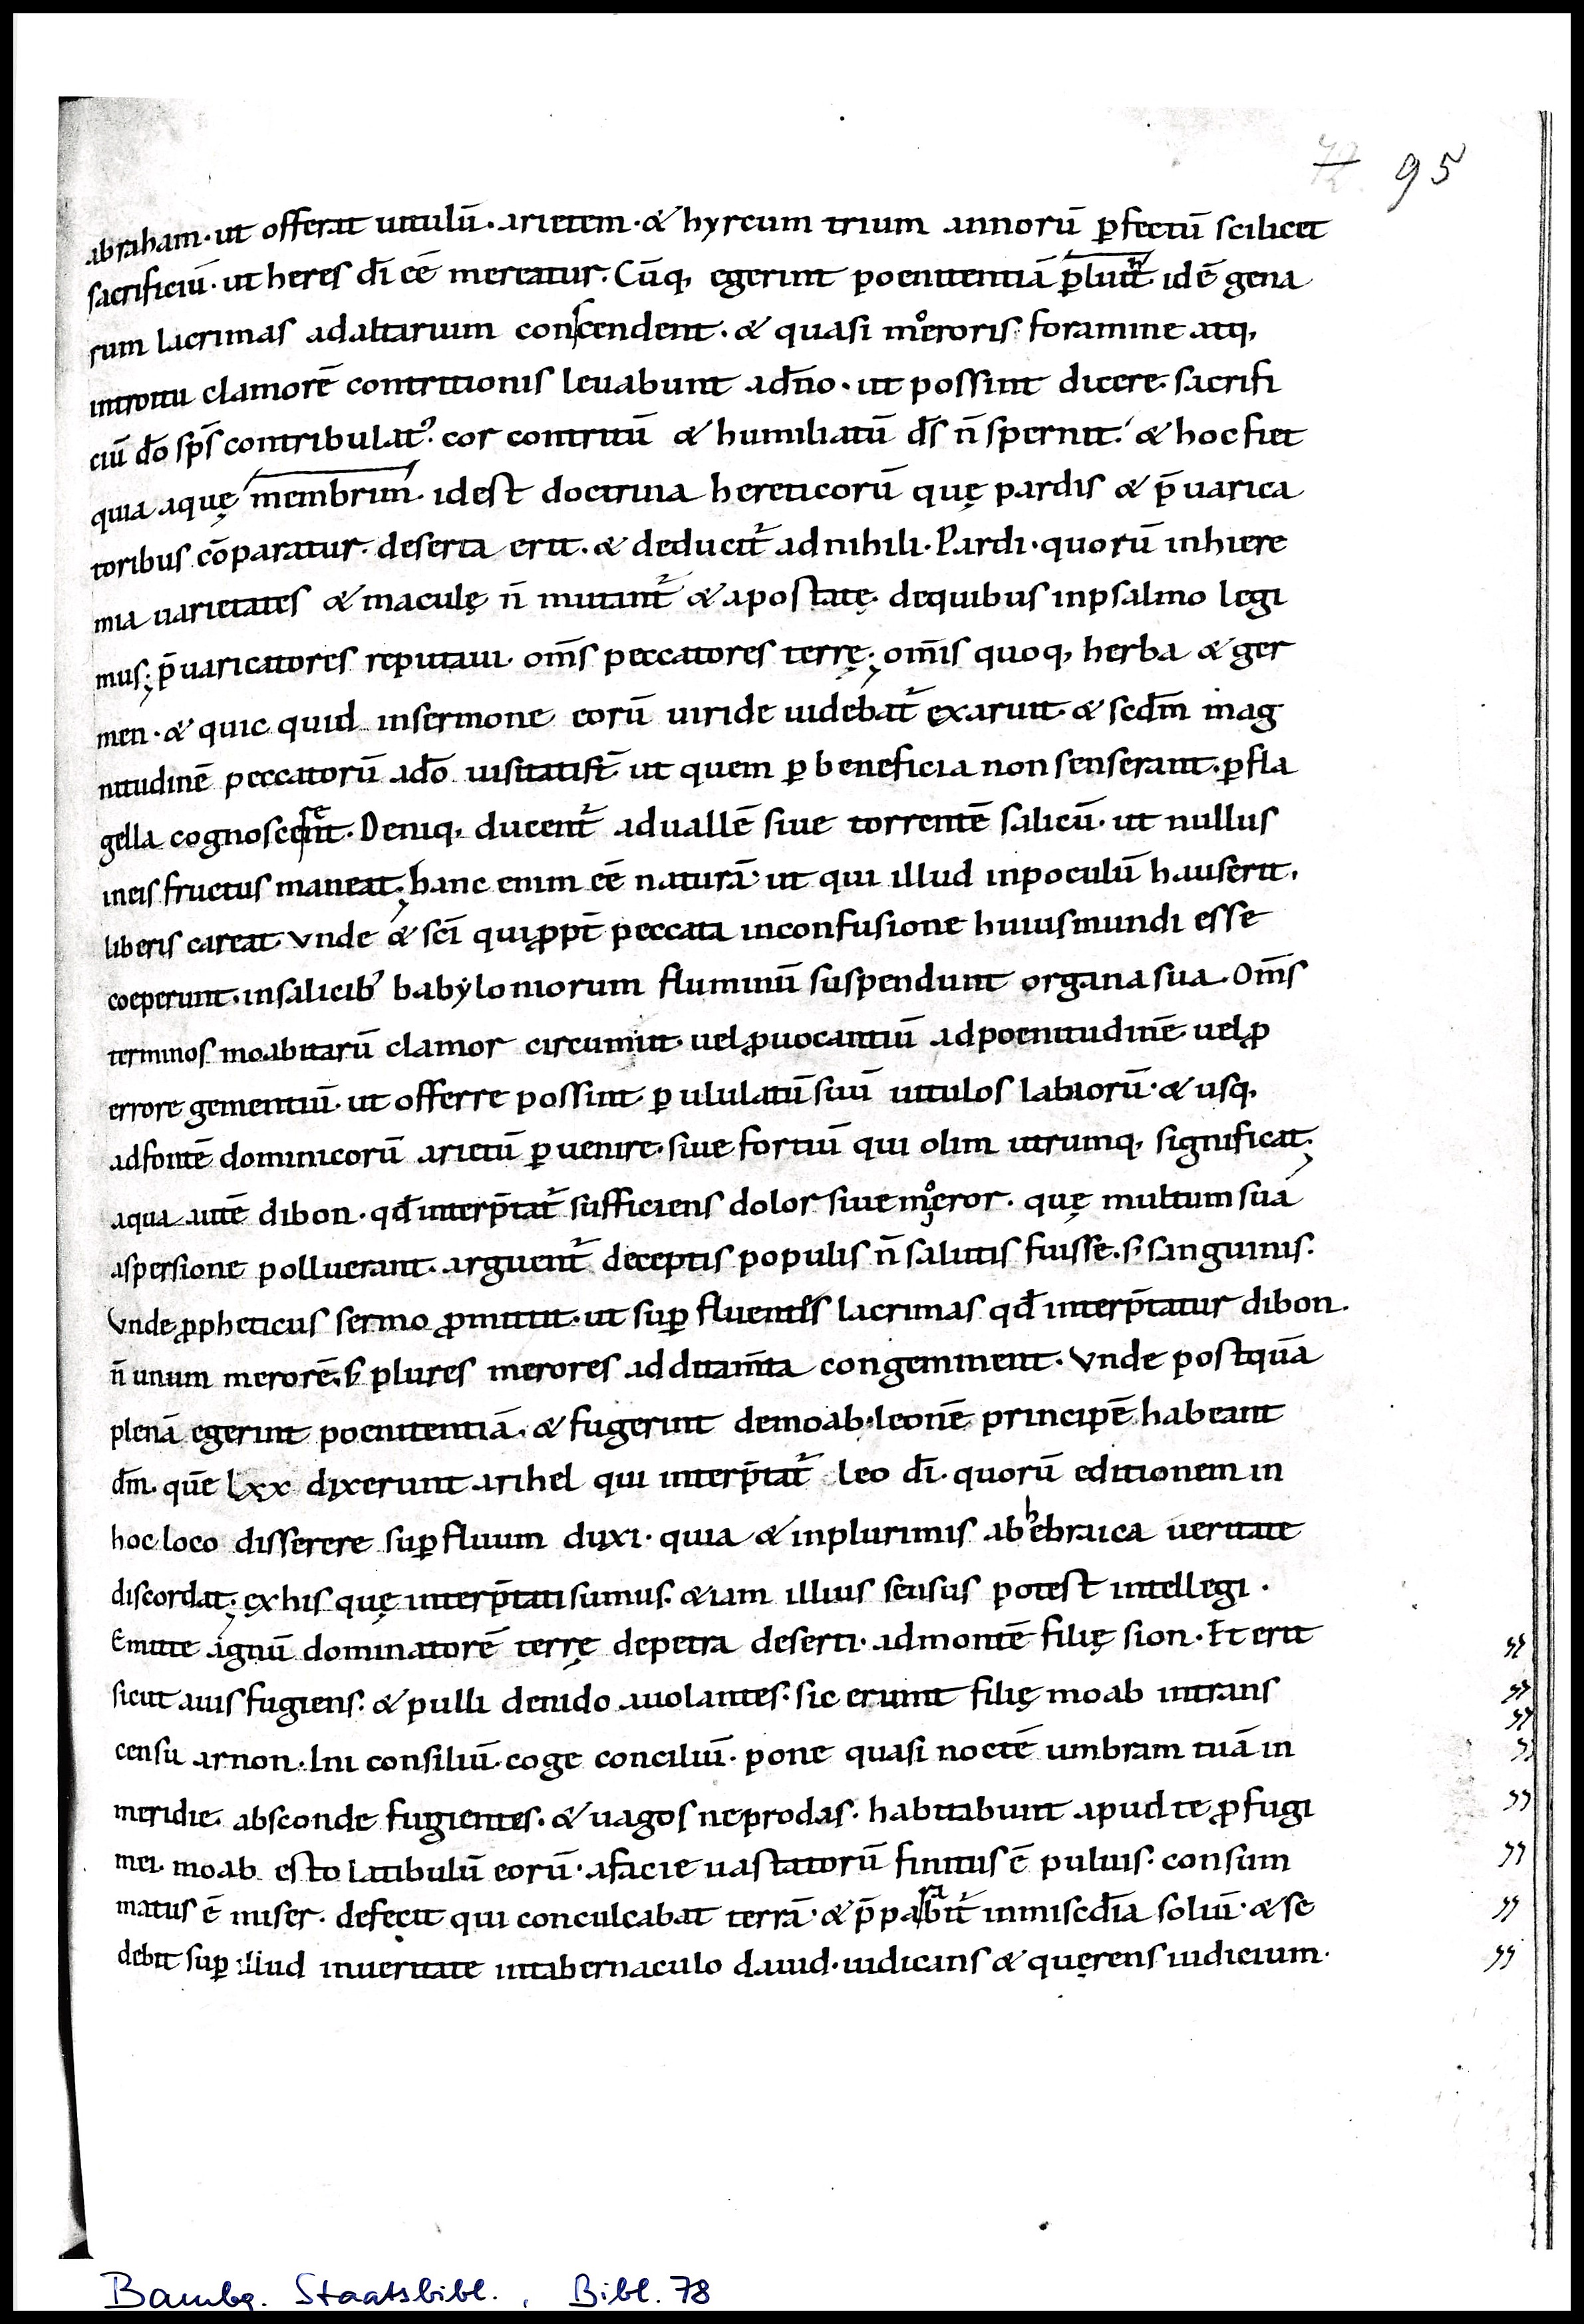 72 95
abraham · ut offerat uitulū · arietem · & hyrcum trium annorū ꝑfectū scilicet
sacrificiū · ut heres dī eē mereatur · Cūq, egerint poenitentiā ꝑluuꝫ idē gena
rum lacrimas adaltarium conscendent · & quasi męroris foramine atq,
introitu clamorē contritionis leuabunt adn̄o · ut possint dicere · sacrifi
ciū dō sps̄ contribulat᾿ · cor contritū & humiliatū ds̄ n̄ spernit · & hoc fiet
quia aquę membrim · idest doctrina hereticorū quę pardis & p̄uarica
toribus cōparatur · deserta erit · & deducit᷑ adnihili · Pardi · quorū inhiere
mia uarietates & maculę n̄ mutant᷑ & apostatę · dequibus inpsalmo legi
mus; p̄uaricatores reputaui om̄s peccatores terrę; om̄is quoq, herba & ger
men · & quic quid insermone eorū uiride uidebat᷑ exaruit · & scdm̄ mag
nitudinē peccatorū adō uisitatis̄t ut quem ꝑ beneficia non senserant · ꝑ fla
gella cognoscent · Deniq, ducent᷑ aduallē siue torrentē salicū · ut nullus
ineis fructus maneat; hanc enim eē naturā · ut qui illud inpoculū hauserit,
liberis careat vnde & sc̄i qui ꝓpt̄ peccata inconfusione huiusmundi esse
coeperunt · insalicib᾿ babyloniorum fluminū suspendunt organa sua · Om̄s
terminos moabitarū clamor circumiit · uel ꝓuocantiū adpoenitudinē uel ꝓ
errore gementiū · ut offerre possint ꝑ ululatū suū uitulos labiorū · & usq,
adfontē dominicorū arietū ꝑuenire · siue fortiū qui olim utrumq, significat;
aqua autē dibon · qđ interp̄tat᷑ sufficiens dolor siue męror · quę multum sua
aspersione polluerant · arguent᷑ deceptis populis n̄ salutis fuisse · s᷑ sanguinis ·
Vnde ꝓpheticus sermo ꝓmittit · ut suꝑ fluentes lacrimas qđ interp̄tatur dibon ·
n̄ unum merorē, s᷑ plures merores additam̄ta congeminent · Vnde postquā
plenā egerint poenitentiā · & fugerint demoab · leonē principē habeant
dm̄ · quē lxx dixerunt arihel qui interp̄tat᷑ leo dī · quorū editionem in
hoc loco disserere suꝑfluum duxi · quia & inplurimis abhebraica ueritate
discordat; exhis quę interp̄tati sumus · &iam illius sensus potest intellegi ·
Emitte agnū dominatorē terrę depetra deserti · admontē filię sion · Et erit
sicut auis fugiens · & pulli denido auolantes · sic erunt filię moab intrans
censu arnon · Ini consiliū · coge conciliū · pone quasi noctē umbram tuā in
meridie · absconde fugientes · & uagos neprodas · habitabunt apud te ꝓfugi
mei · moab esto latibulū eorū · afacie uastatorū finitus ē puluis · consum
matus ē miser · defecit qui conculcabat terrā · & p̄parabit᷑ inmisedīa soliū · & se
debit suꝑ illud inueritate intabernaculo dauid · iudicans & quęrens iudicium ·
Bambg. Staatsbibl., Bibl. 78